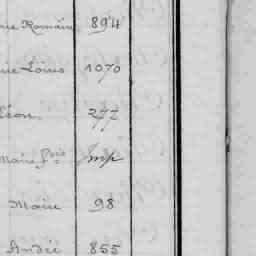 rie Romain 894
rie Louis 1070
Léon 277
Marie fois Imp
Marie 98
André 855